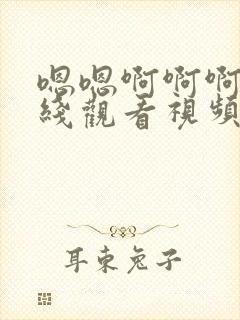 嗯嗯啊啊啊
綫觀看視頻
耳東兔子